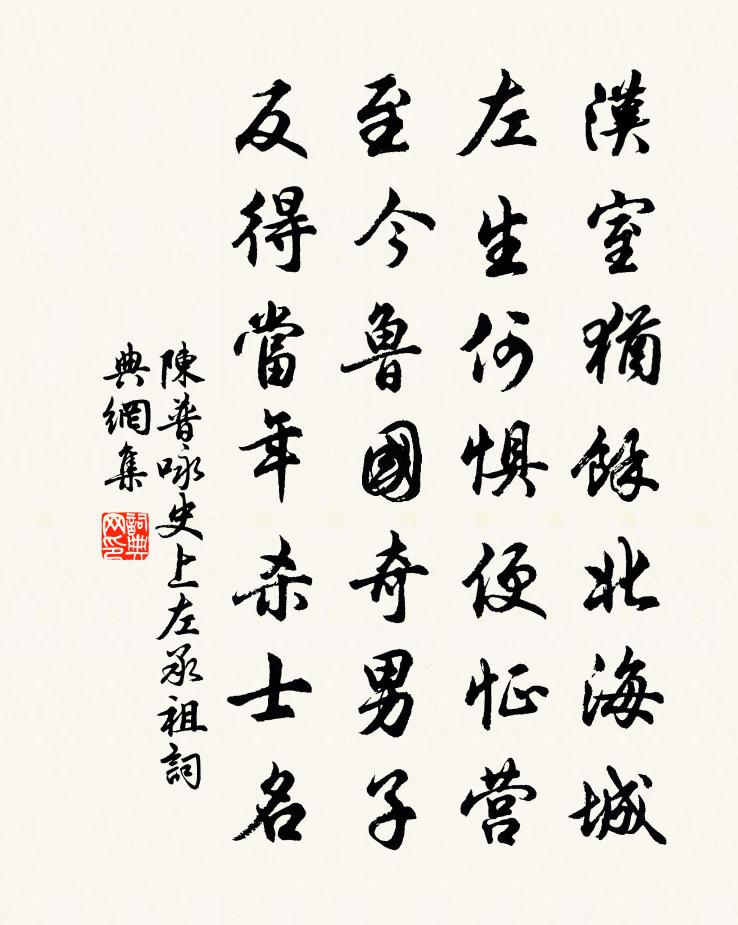 漢室猶餘北海城
左生何惧便怔营
至今魯國奇男子
反得當年杀士名
陳普咏史上左承祖詞
典網集
詞典网印